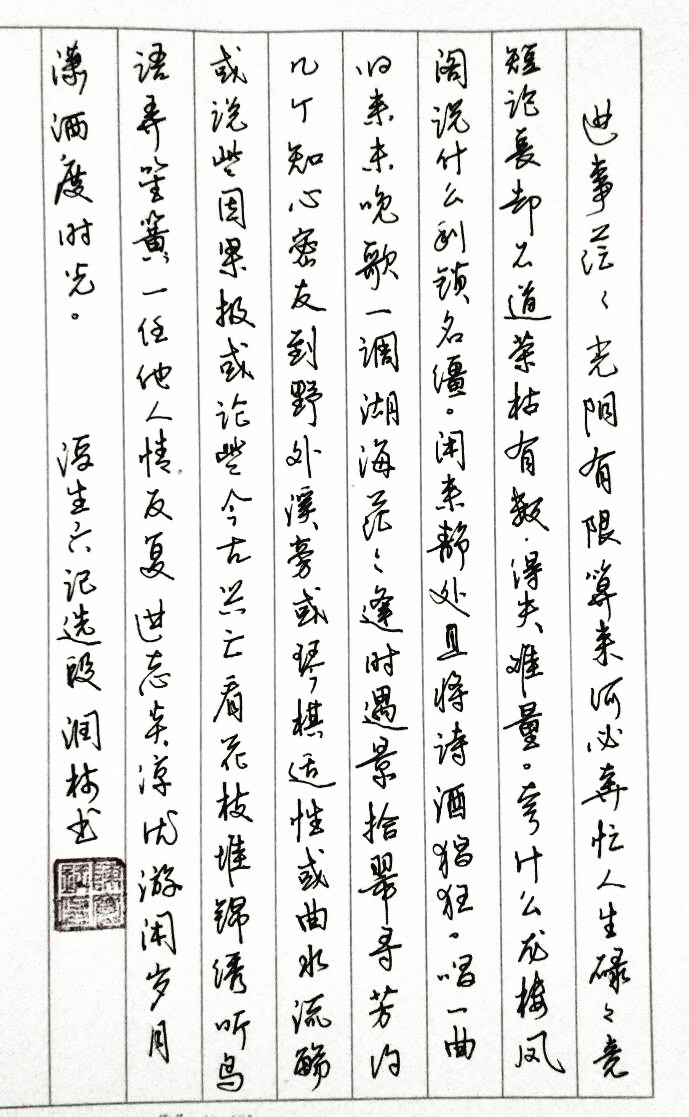 世事茫々光阴有限算来何必奔忙人生碌々竞
短论长却不道荣枯有数·得失难量。夸什么龙楼凤
阁说什么利锁名缰。闲来静处且将诗酒猖狂。唱一曲
归来未晚歌一调湖海茫々逢时遇景拾翠寻芳约
几个知心密友到野外溪旁或琴棋适性或曲水流觞
或说些因果报或论些今古兴亡看花枝堆锦绣听鸟
语弄笙簧一任他人情反复世态炎凉优游闲岁月
潇洒度时光。
浮生六记选段润林书